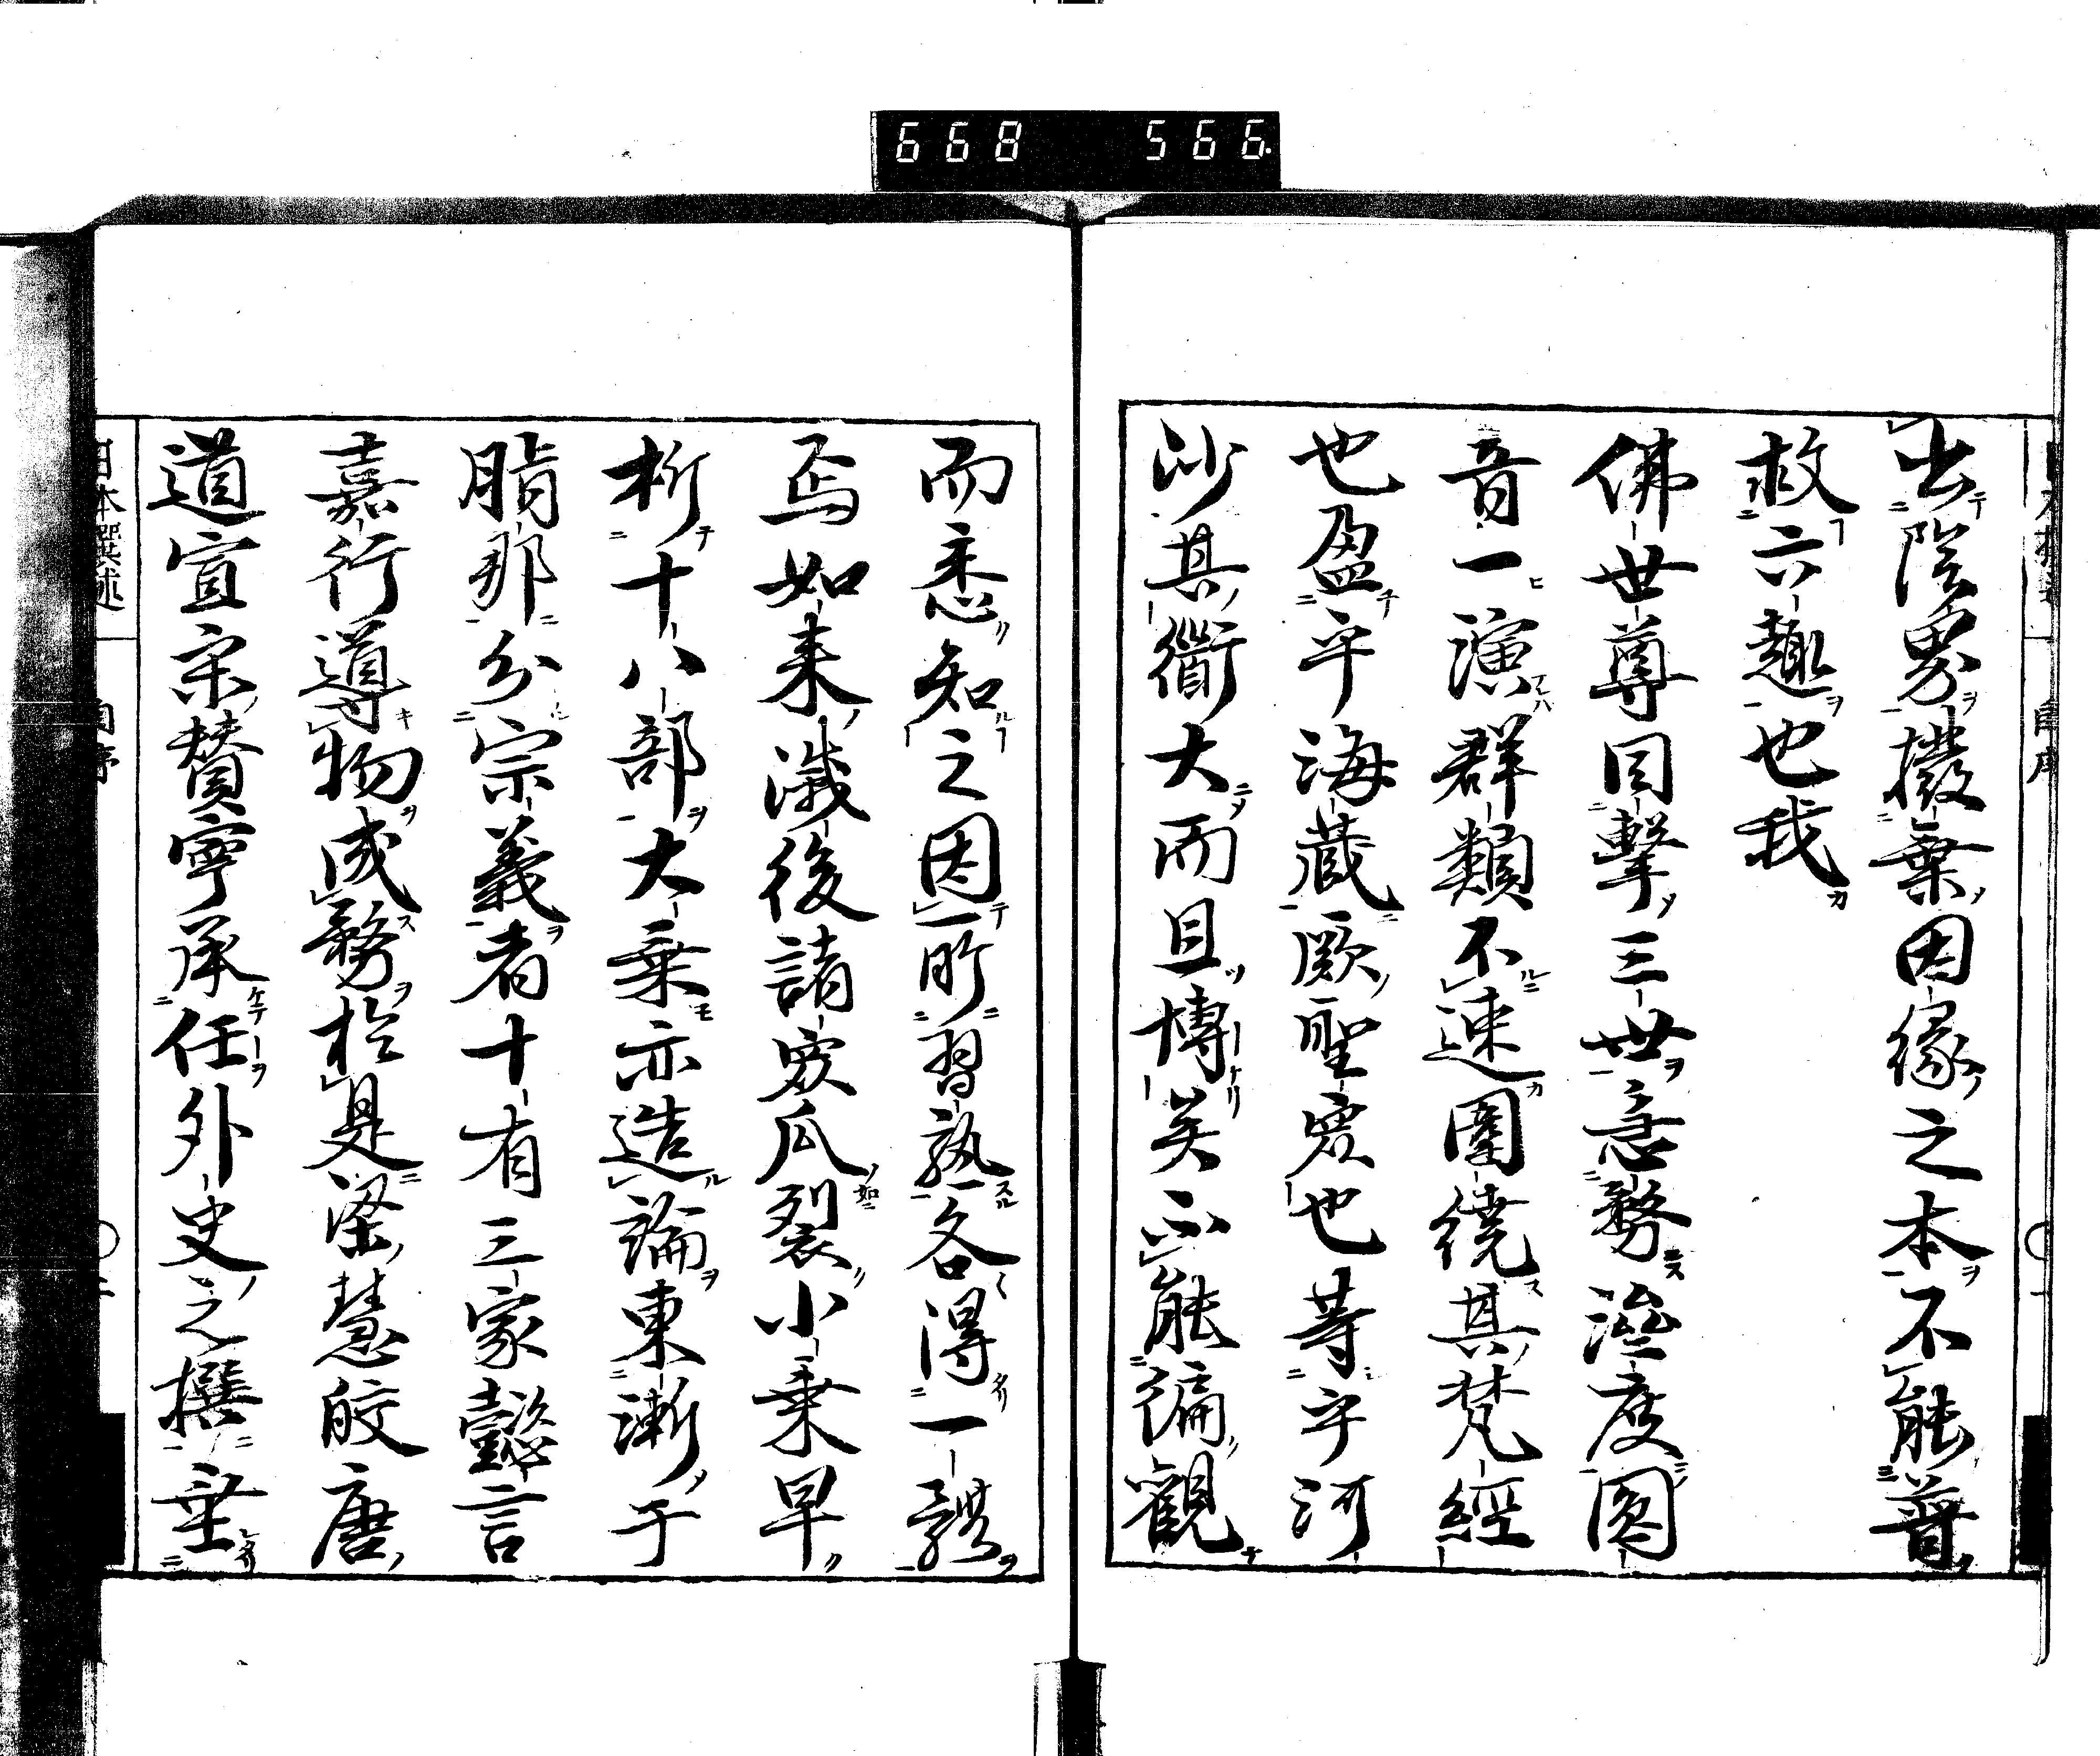 668 566
出陰界撥棄因緣之本不能普
救六趣也我
佛世尊目擊三世意務濟度圓
音一演群類不速圍繞其梵經
也盈乎海藏厥聖眾也等乎河
沙其衢大而且博矣不能徧觀
而悉知之因所習熟各得一
焉如来滅後諸眾瓜裂小乗早
析十八部大乗亦造論東漸于
脂那分宗義者十有三家懿言
嘉行導物成務於是梁慧皎唐
道宣宋賛寧承任外史之撰垂
日本撰述 自序 二